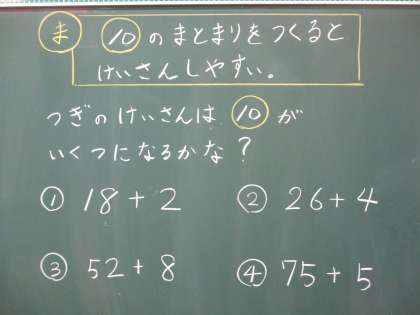 ま ⑩のまとまりをつくると
けいさんしやすい。
つぎのけいさんは⑩が
いくつになるかな?
① 18+2 ② 26+4
③ 52+8 ④ 75+5